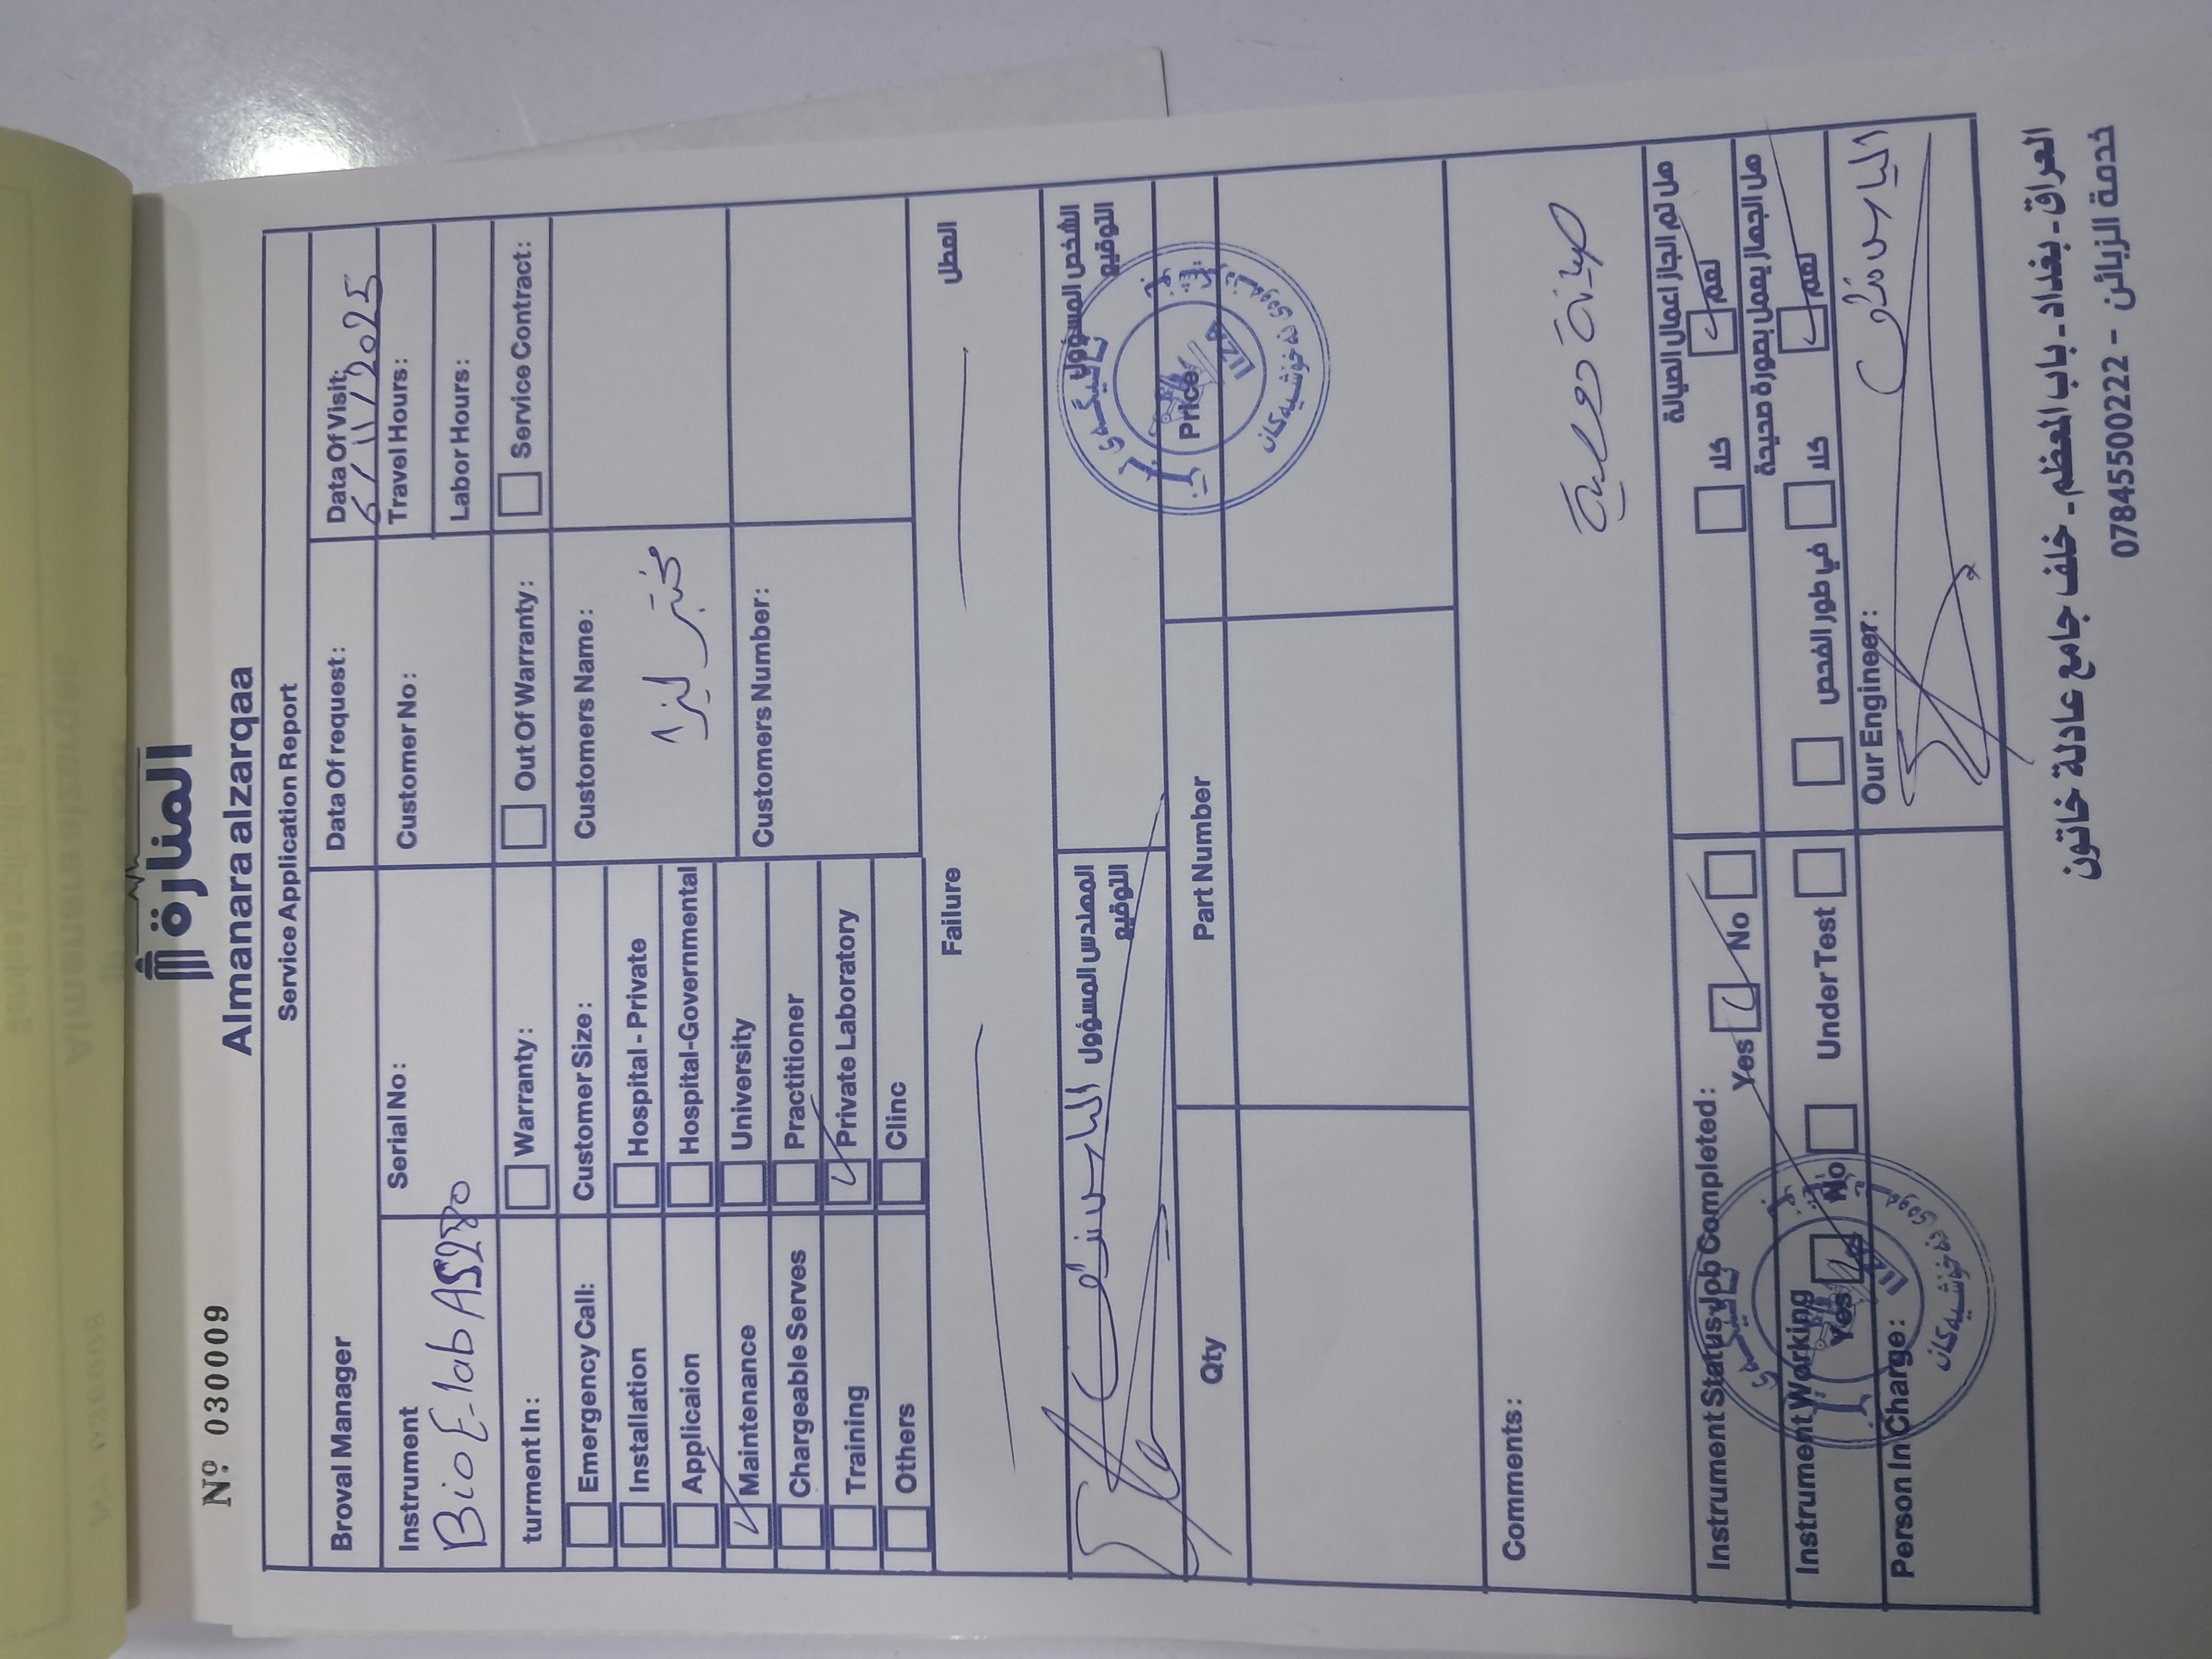 المنارة
Nº 030009
Almanara alzarqaa
Service Application Report
Broval Manager
Data Of request:
Data Of Visit:
6/11/2025
Instrument
BioE-lab AS280
Serial No:
Customer No:
Travel Hours:
Labor Hours:
turment In:
Warranty:
Out Of Warranty:
Service Contract:
Emergency Call:
Customer Size:
Customers Name:
Installation
Hospital - Private
مختبر ليزا
Applicaion
Hospital-Governmental
Maintenance
University
Customers Number:
Chargeable Serves
Practitioner
Training
Private Laboratory
Others
Clinc
Failure
العطل
المهندس المسؤول
التوقيع
الشخص المسؤول
التوقيع
LIZA
Qty
Part Number
Price
Comments:
صيانة دورية
Instrument Status-Job Completed:
Yes
No
هل تم انجاز اعمال الصيانة
كلا
نعم
Instrument Working
Yes
No
Under Test
في طور الفحص
كلا
نعم
هل الجهاز يعمل بصورة صحيحة
Person In Charge:
LIZA
Our Engineer:
العراق - بغداد - باب المعظم - خلف جامع عادلة خاتون
خدمة الزبائن - 07845500222